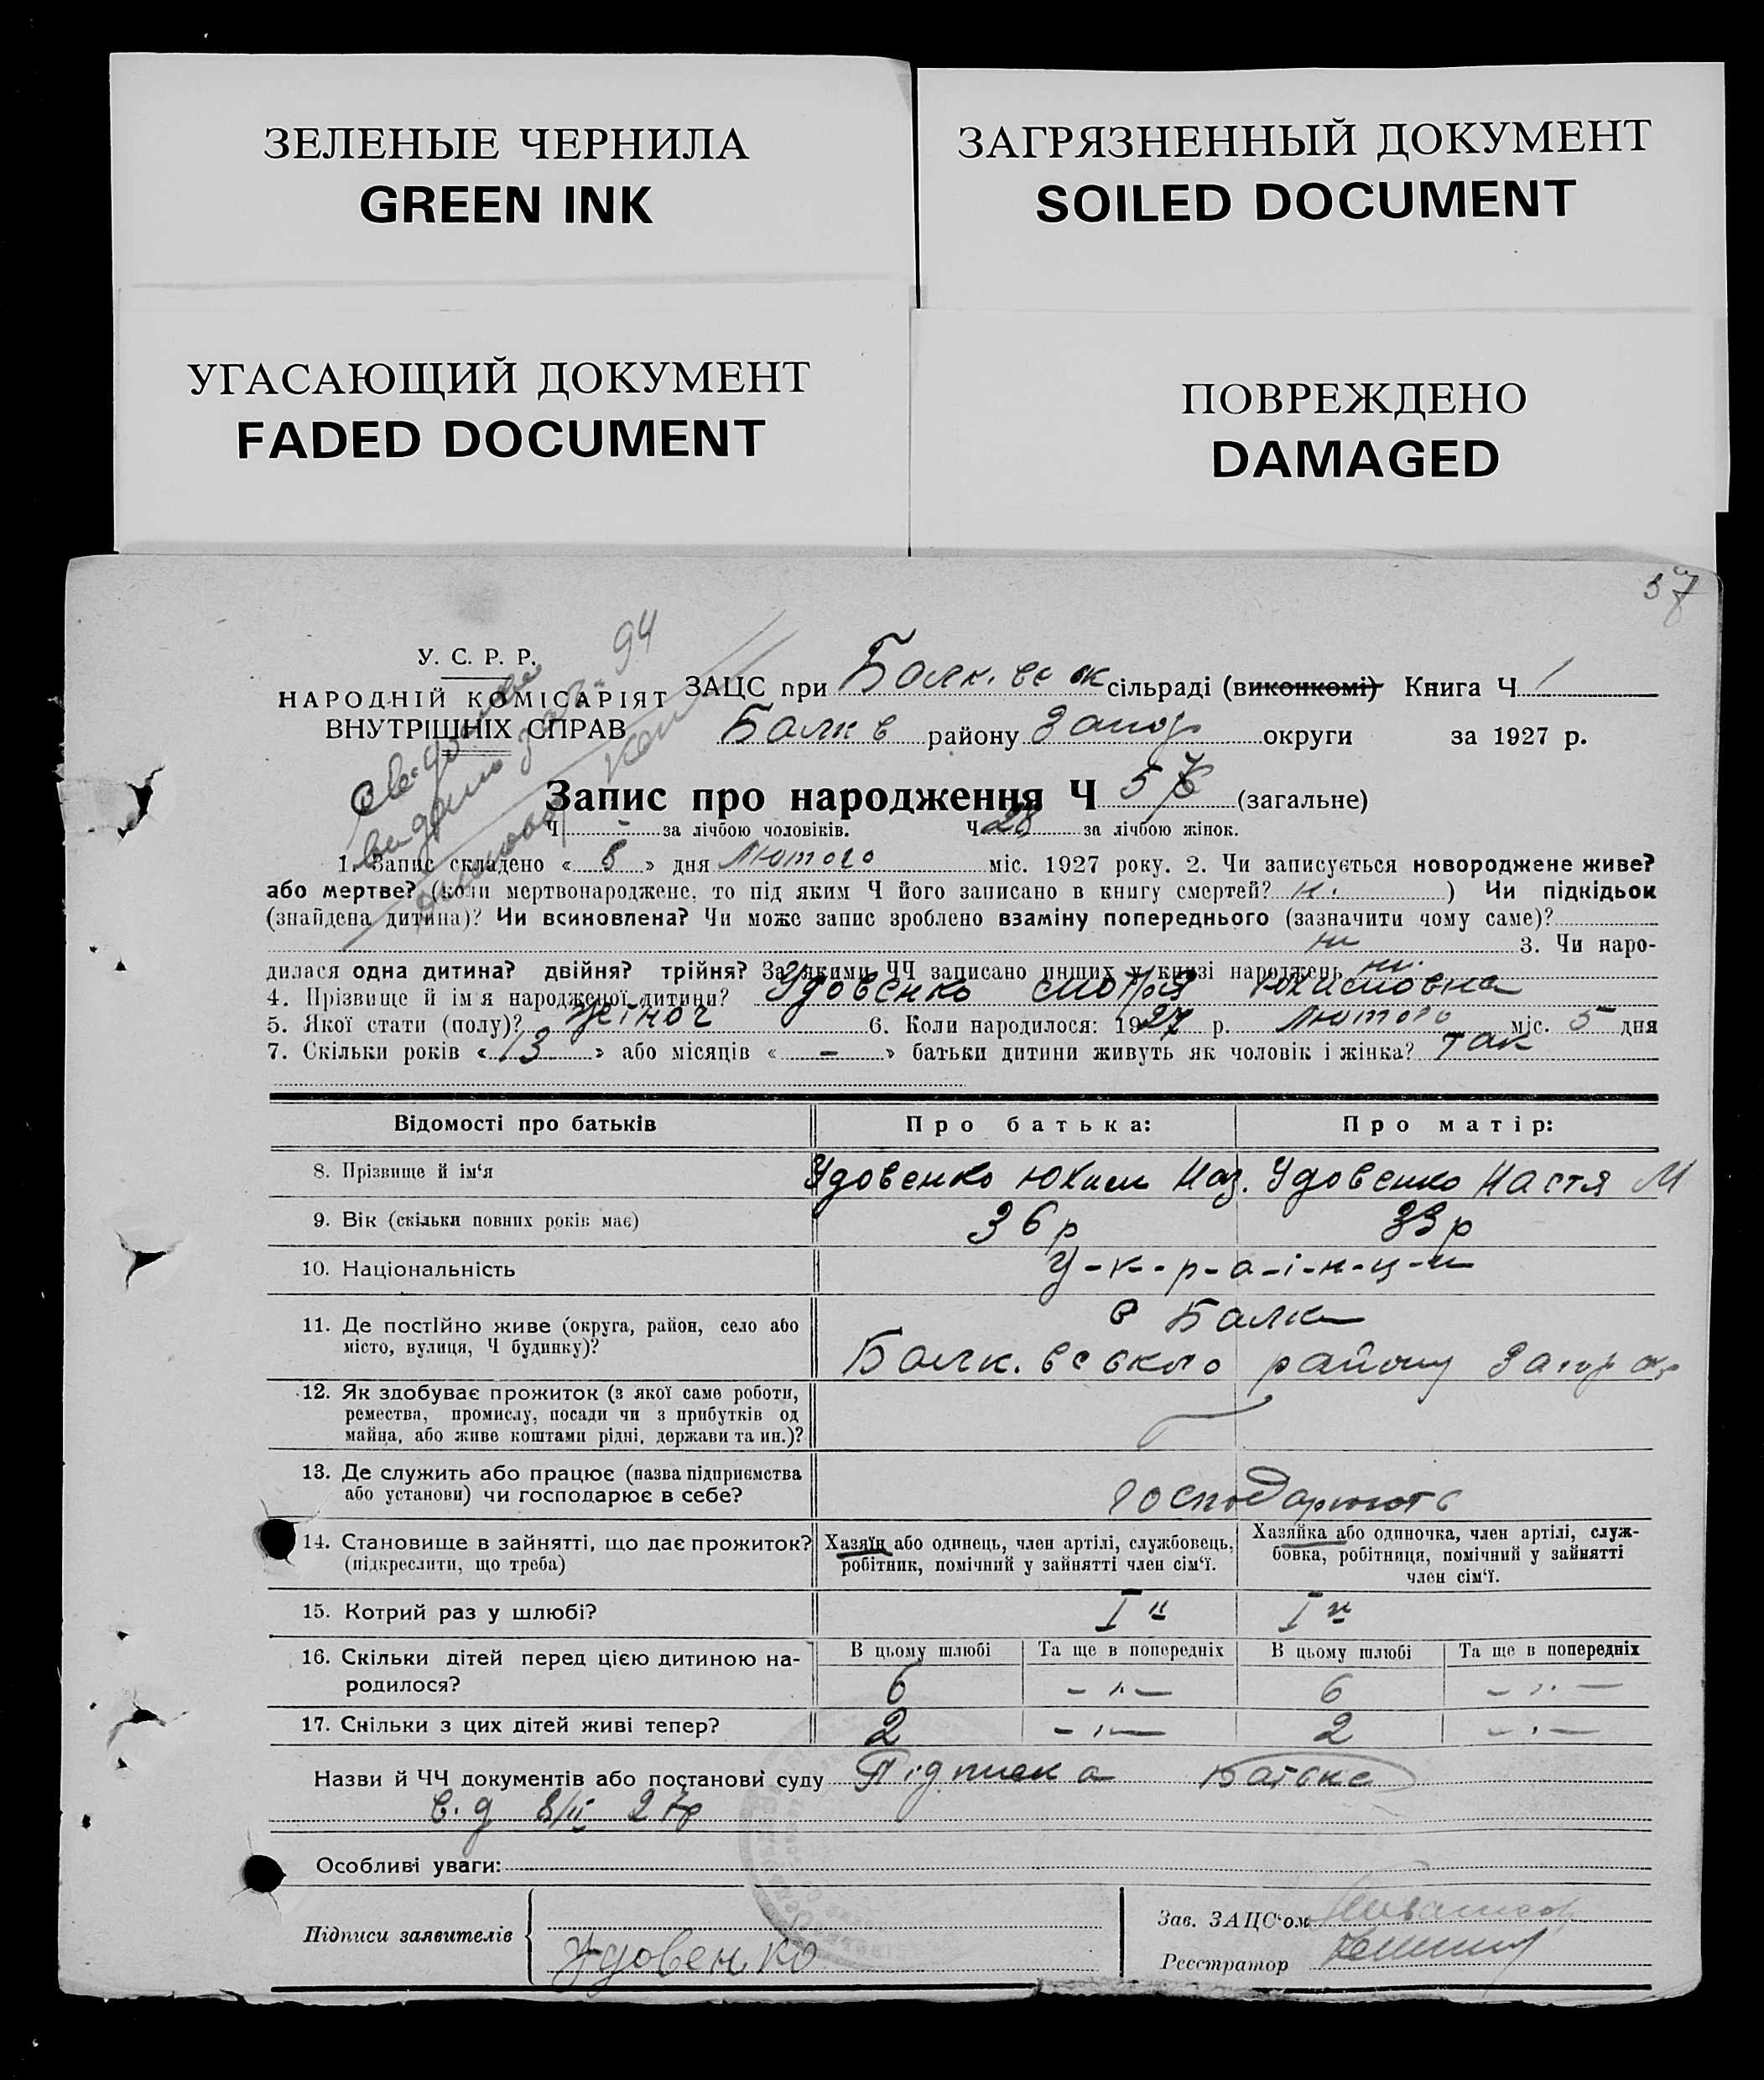 ЗЕЛЕНЫЕ ЧЕРНИЛА
GREEN INK
ЗАГРЯЗНЕННЫЙ ДОКУМЕНТ
SOILED DOCUMENT
УГАСАЮЩИЙ ДОКУМЕНТ
FADED DOCUMENT
ПОВРЕЖДЕНО
DAMAGED
57
У. С. Р. Р.
НАРОДНІЙ КОМІСАРІЯТ
ВНУТРІШНІХ СПРАВ
94
ЗАЦС при сільраді (виконкомі) Книга Ч 1
Балків району Запор округи за 1927 р.
Запис про народження Ч 57 (загальне)
Ч - за лічбою чоловіків. Ч 28 за лічбою жінок.
1. Запис складено « 8 » дня Лютого міс. 1927 року. 2. Чи записується новороджене живе?
або мертве? (коли мертвонароджене, то під яким Ч його записано в книгу смертей? ) Чи підкідьок
(знайдена дитина)? Чи всиновлена? Чи може запис зроблено взаміну попереднього (зазначити чому саме)?
ни 3. Чи наро-
дилася одна дитина? двійня? трійня? За якими ЧЧ записано инших у книзі народжень ни.
4. Прізвище й ім'я народженої дитини? Удовенко Юхимовна
5. Якої стати (полу)? жіноч 6. Коли народилося: 1927 р. Лютого міс. 5 дня
7. Скільки років « 13 » або місяців « – » батьки дитини живуть як чоловік і жінка? Так
Відомості про батьків Про батька: Про матір:
8. Прізвище й ім'я Удовенко Юхим Наз. Удовенко Настя М
9. Вік (скільки повних років має) 36 р 33 р
10. Національність У-к-р-а-і-н-ц-и
11. Де постійно живе (округа, район, село або
місто, вулиця, Ч будинку)?
с Балки
Балк.вського району Запор окр
12. Як здобуває прожиток (з якої саме роботи,
ремества, промислу, посади чи з прибутків од
майна, або живе коштами рідні, держави та ин.)?
13. Де служить або працює (назва підприємства
або установи) чи господарює в себе?
господарюють
14. Становище в зайнятті, що дає прожиток?
(підкреслити, що треба)
Хазяїн або одинець, член артілі, службовець,
робітник, помічний у зайнятті член сім'ї.
Хазяйка або одиночка, член артілі, служ-
бовка, робітниця, помічний у зайнятті
член сім'ї.
15. Котрий раз у шлюбі? І й І й
16. Скільки дітей перед цією дитиною на-
родилося?
В цьому шлюбі Та ще в попередніх В цьому шлюбі Та ще в попередніх
6 – " – 6 – " –
17. Скільки з цих дітей живі тепер? 2 – " – 2 – " –
Назви й ЧЧ документів або постанови суду Підписка Батька
в. д 8/II 27р
Особливі уваги:
Підписи заявителів
Удовенко
Зав. ЗАЦС'ом
Реєстратор